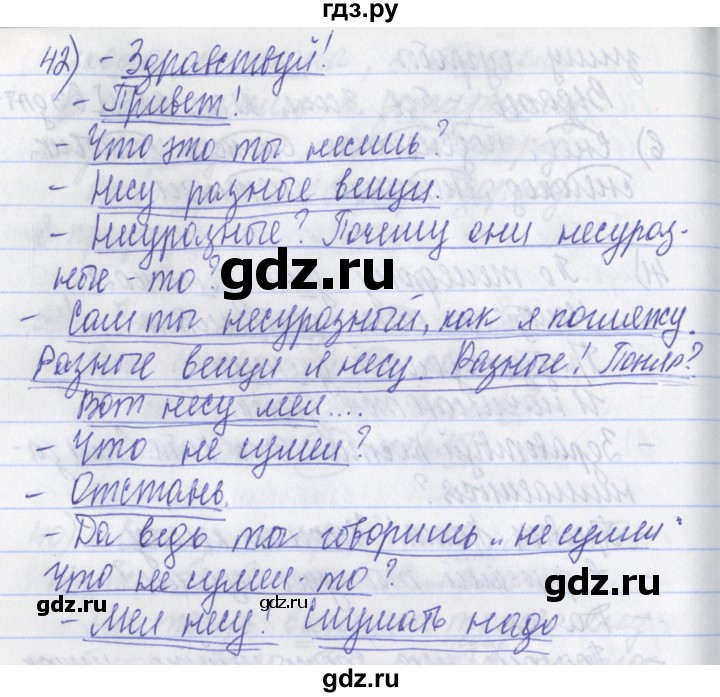 гдз.ру
42) - Здравствуй!
- Привет!
- Что это ты несешь?
- Несу разные вещи.
- Несуразные? Почему они несураз-
ные - то?
gdz.ru
- Сам ты несуразный, как я погляжу.
Разные вещи я несу. Разные! Понял?
gdz.ru
Вот несу мел....
- Что не сумел?
- Отстань.
- Да ведь ты говоришь „не сумел"
Что не сумел-то?
gdz.ru
gdz.ru
- Мел несу! Слушать надо
gdz.ru